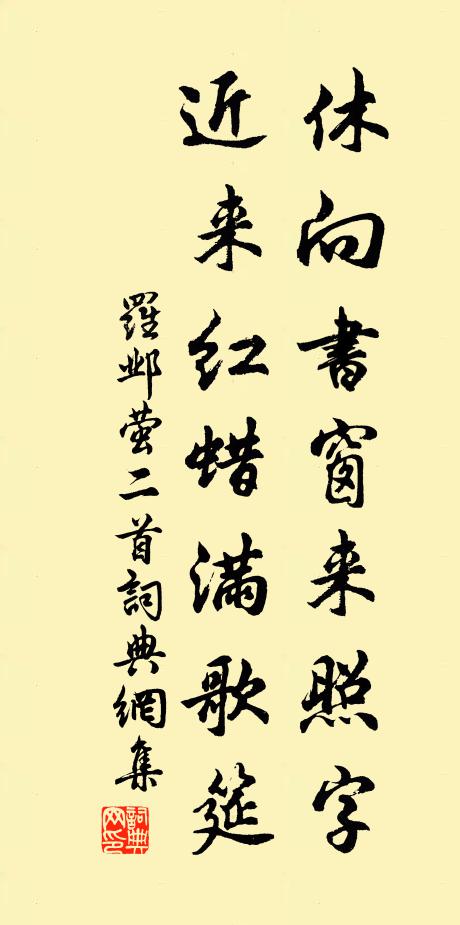 休向書窗来照字
近来红蜡满歌筵
羅邺萤二首詞典網集
詞典网印